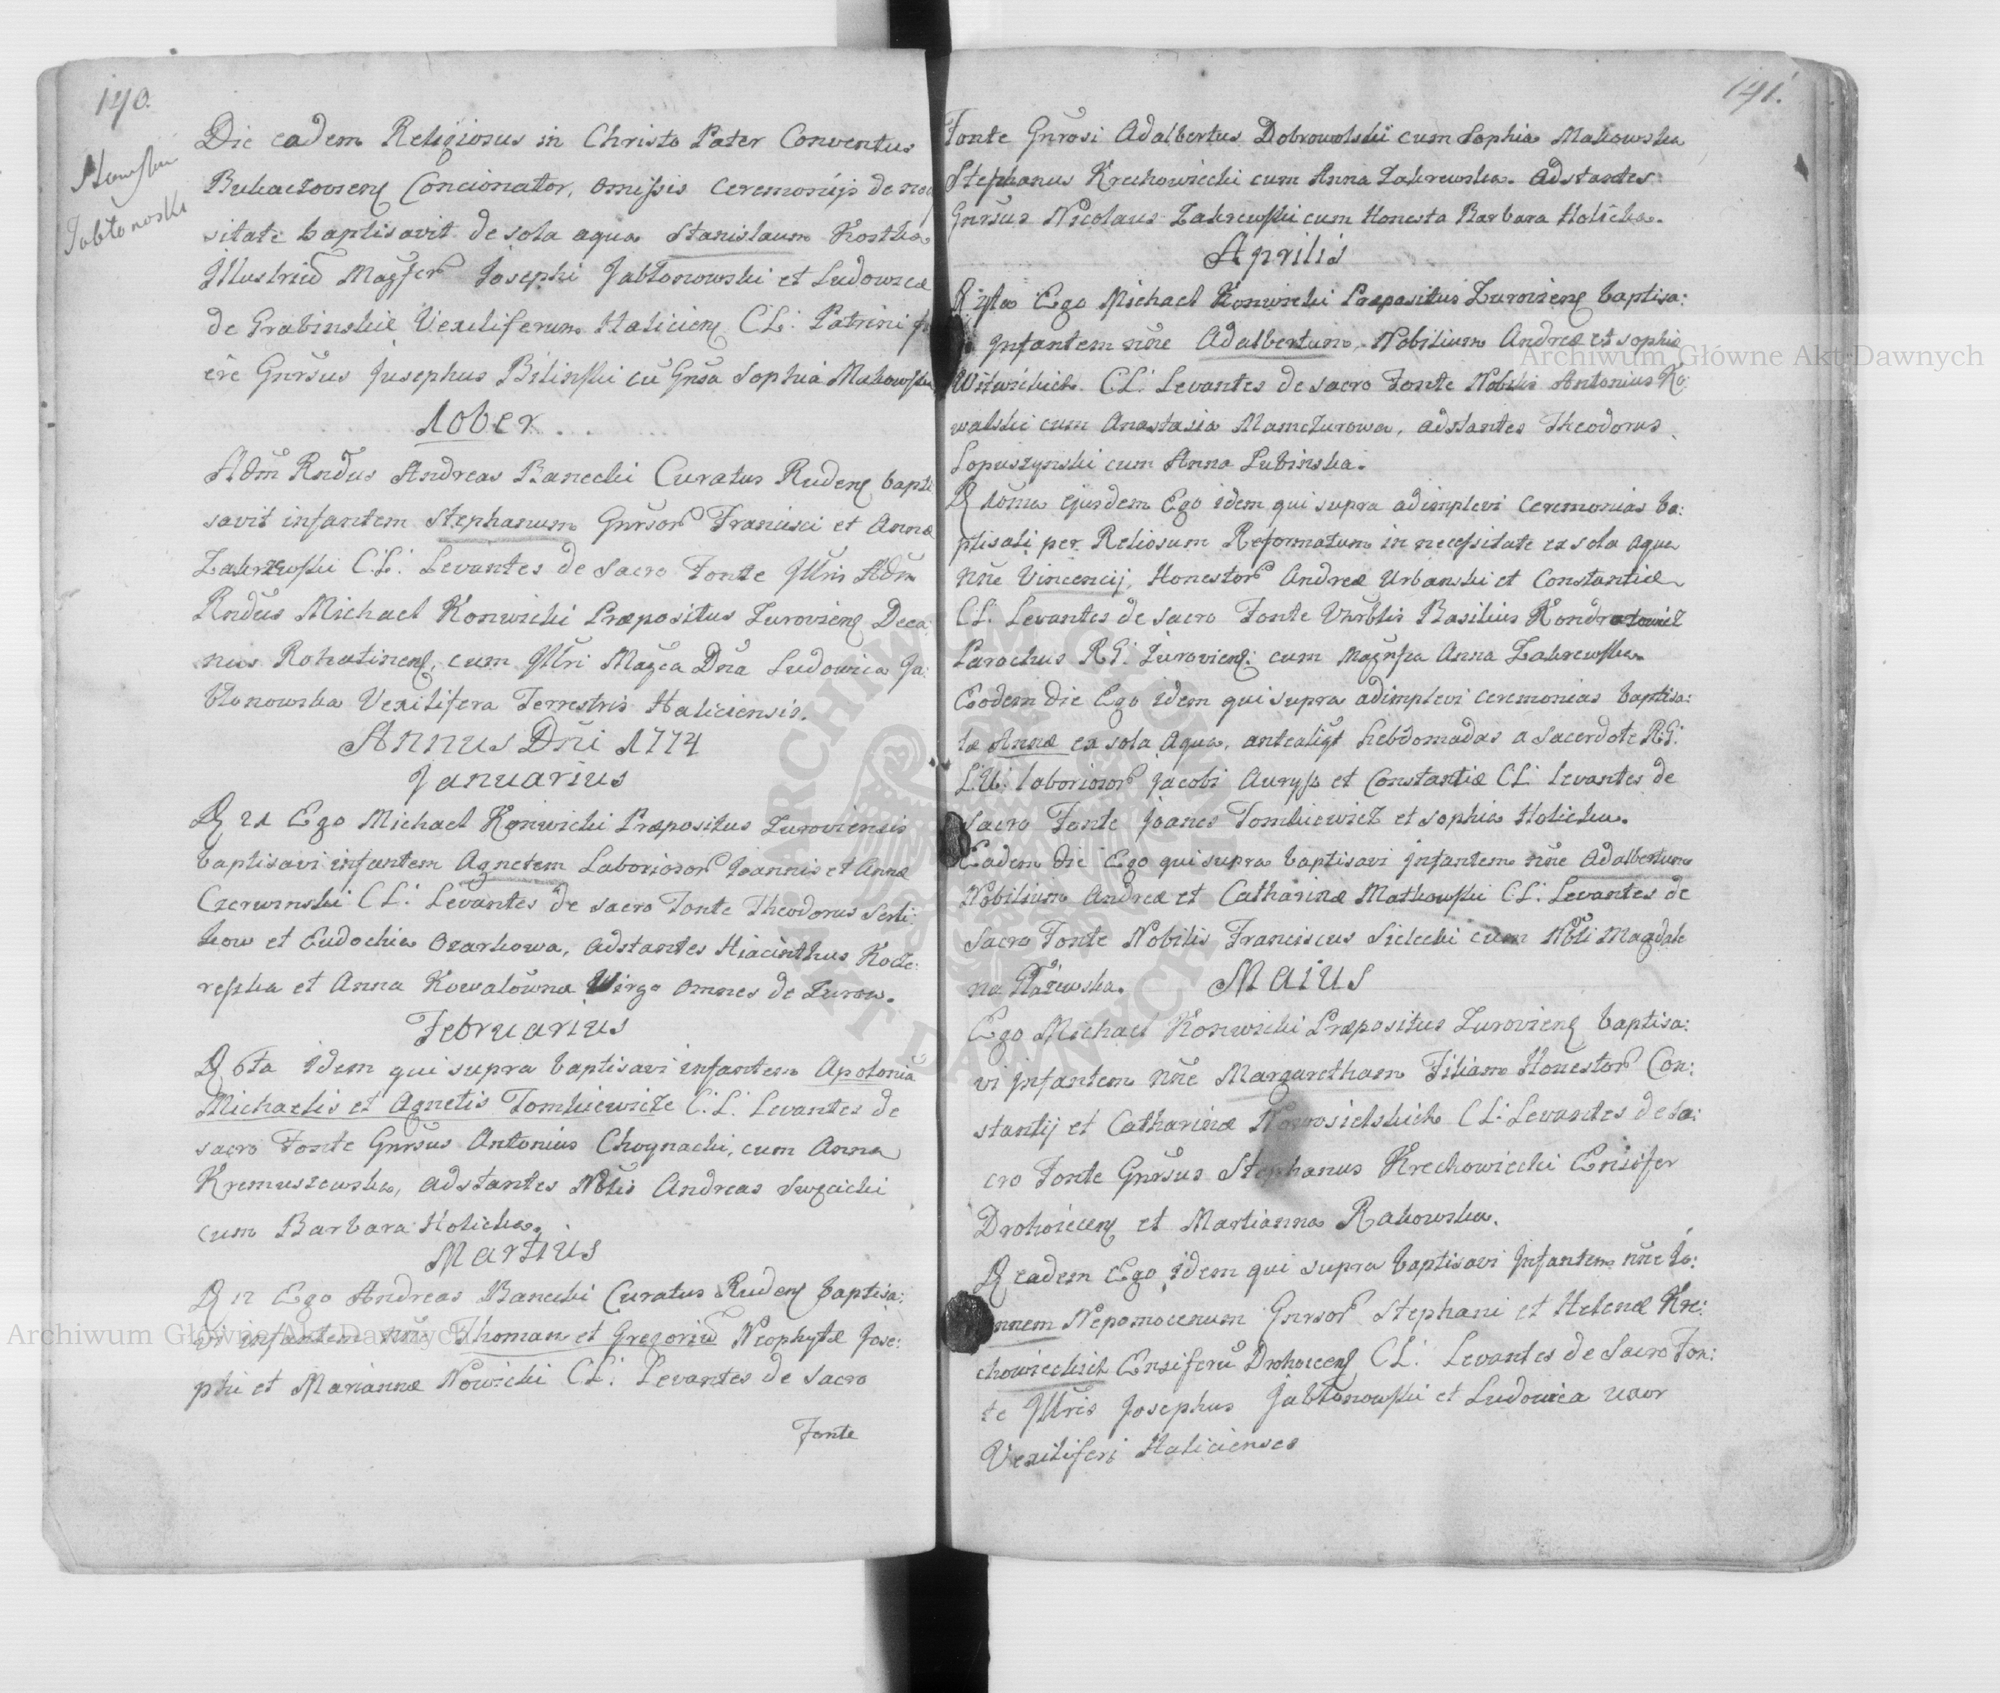 140.
Stanislau
Jabłonoski
Die eadem Religiosus in Christo Pater Conventus
Bukaczoviens Concionator, omissis ceremoniis de nec
sitate baptisavit de sola aqua Stanislaum Kostka
Illustriū Magfcr Josephi Jabłonowski et Ludowicæ
de Grabinskie Vexiliferum Haliciens CL: Patrini fu
ere Gnrsus Jusephus Bilinski cū Gnsa Sophia Makowska
10ber
Adm Rndus Andreas Banecki Curatus Rudens bapti
savit infantem Stephanum Gnrsor Francisci et Annæ
Zakrzewski C:L: Levantes de Sacro Fonte Illris Adm
Rndus Michael Konwicki Præpositus Zuroviens Deca
nus Rohatinens, cum Illri Magca Dna Ludowica Ja:
błonowska Vexilifera Terrestris Haliciensis.
Annus Dni 1774
Januarius
D 21 Ego Michael Konwicki Præpositus Zuroviensis
baptisavi infantem Agnetem Laboriosor Joannis et Annæ
Czerwinski CL: Levantes de sacro Fonte Theodorus Serti:
kow et Eudochia Ozarkowa, adstantes Hiacinthus Kocze:
reszka et Anna Kowalowna Virgo omnes de Zurow.
Februarius
D 6ta idem qui supra baptisavi infantem Apoloniā
Michaelis et Agnetis Tomkiewicze C:L: Levantes de
sacro Fonte Gnrsus Antonius Choynacki, cum Anna
Kremuszewska, adstantes Nblis Andreas Swzcicki
cum Barbara Holicka.
Martius
D 12 Ego Andreas Banecki Curatus Rudens baptisa:
vi infantem nne Thomam et Gregoriū Neophytæ Jose:
phi et Mariannæ Nowicki CL: Levantes de Sacro
Fonte
141.
Fonte Gnrosi Adalbertus Dobrowolski cum Sophia Makowska
Stephanus Krechowiecki cum Anna Zakrewska. Adstantes:
Gnrsus Nicolaus Zakrewski cum Honesta Barbara Holicka.
Aprilis
Ego Michael Konwicki Præpositus Zuroviens baptisa:
vi Infantem nne Adalbertum, Nobilium Andreæ et Sophiæ
Witwickich CL: Levantes de sacro Fonte Nobilis Antonius Ko:
walski cum Anastasia Mamczurowa, adstantes Theodorus
Lopuszynski cum Anna Lubinska.
D 10ma ejusdem Ego idem qui supra adimplevi ceremonias ba:
ptisati per Reliosum Reformatum in necessitate ex sola aqua
nne Vincencij, Honestor Andreæ Urbanski et Constantiæ
CL: Levantes de sacro Fonte Vnrblis Basilius Kondratowicz
Parochus R:G: Zuroviens: cum Magnfca Anna Zakrewska.
Eodem die Ego idem qui supra adimplevi ceremonias baptisa:
tæ Annæ ex sola Aqua, antealiqt hebdomadas a Sacerdote R:G:
L:U: laboriosor Jacobi et Constantiæ CL: levantes de
sacro Fonte Joanes Tomkiewicz et Sophia Holicka.
Eadem die Ego qui supra baptisavi Infantem nne Adalbertum
Nobilium Andreæ et Catharinæ Matkowski C:L: Levantes de
Sacro Fonte Nobilis Franciscus Sielecki cum Nbli Magdale
na
Maius
Ego Michael Konwicki Præpositus Zuroviens baptisa:
vi Infantem nne Margaretham Filiam Honestor Con:
stantij et Catharinæ Nowosielskich CL: Levantes de Sa:
cro Fonte Gnrsus Stephanus Krechowiecki Ensifer
Drohoiecens et Martianna Rakowska.
D eadem Ego idem qui supra baptisavi Infantem nne Jo:
annem Nepomocenum Gnrsor Stephani et Helenæ Kre:
chowieckich Ensiferū Drohoiecens CL: Levantes de Sacro Fon:
te Illris Josephus Jabłonowski et Ludowica uxor
Vexiliferi Halicienses